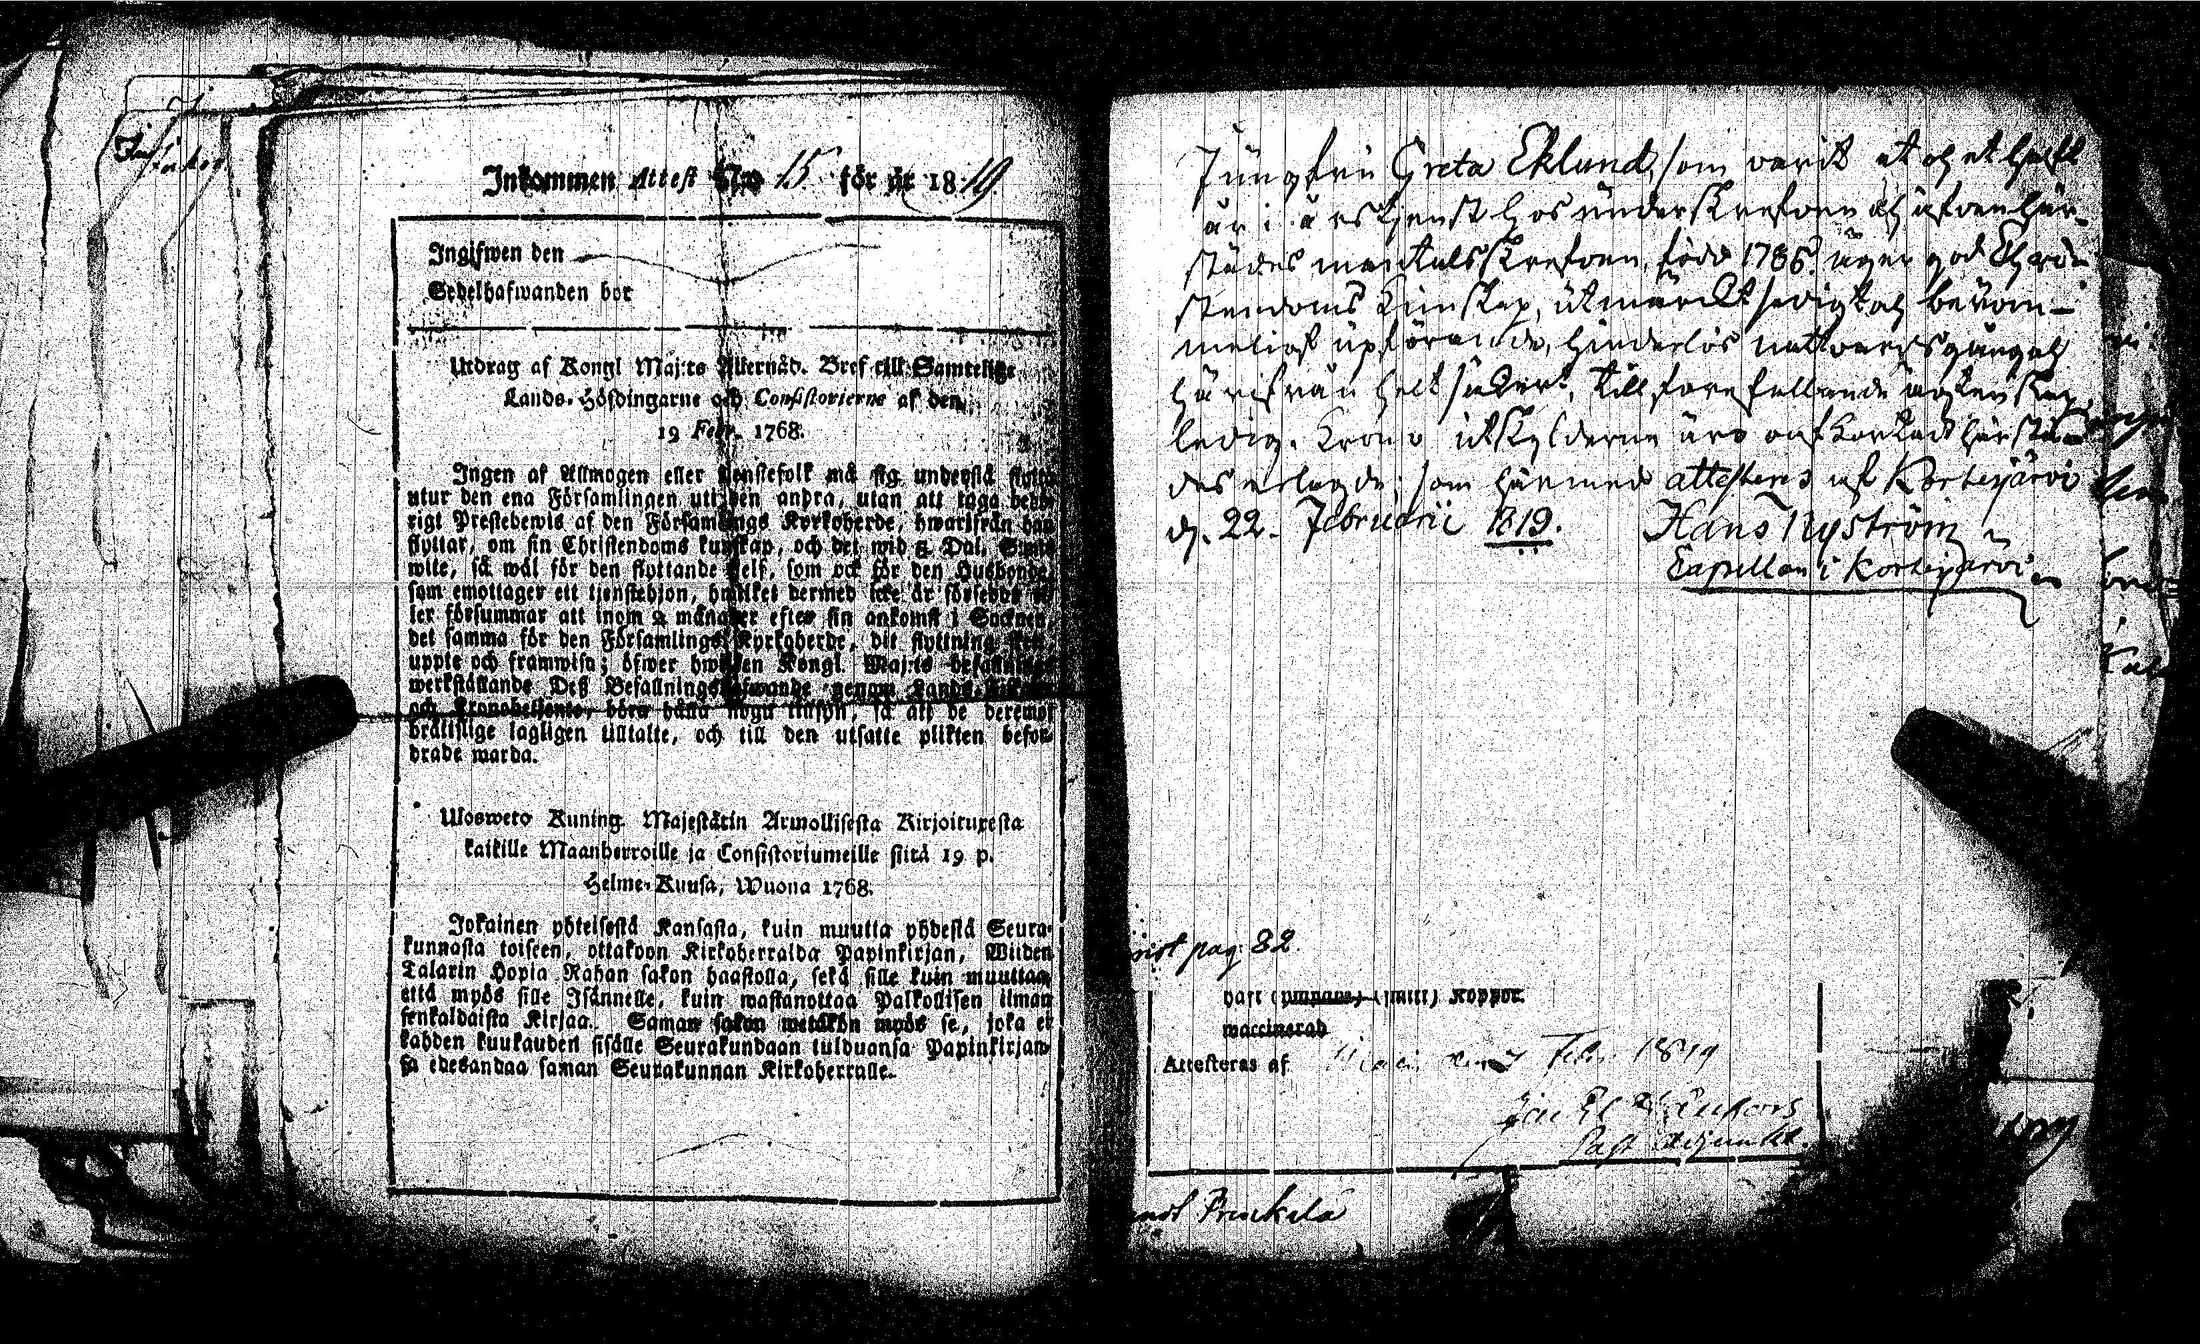 Inkommen Attest N:o 15 för år 1819.
Ingifwen den
Sedelhafwanden bor
Utdrag af Kongl Maj:ts Allernåd. Bref till Samtelige
Lands-Höfdingarne och Consistorierne af den
19 Febr. 1768.
Ingen af Allmogen eller tjenstefolk må sig understå flytta
utur den ena Församlingen uti den andra, utan att taga behö-
rigt Prestebewis af den Församlings Kyrkoherde, hwarifrån han
flyttar, om sin Christendoms kunskap, och det wid 5 Dal. Smts
wite, så wäl för den flyttande self, som ock för den Husbonde,
som emottager ett tjenstehjon, hwilket dermed icke är försedt
ler försummar att inom 2 månader efter sin ankomst i Socknen,
det samma för den Församlings Kyrkoherde, dit flyttning sker
uppte och framwisa; öfwer hwilken Kongl. Maj:ts befallnings
werkställande Deß Befallningshafwande genom Lands-
och Kronobetjente, böra hålla noga tillsyn, så att de deremot
brättslige lagligen tilltalte, och till den utsatte plikten befor-
drade warda.
Ulosweto Kuning. Majestätin Armollisesta Kirjoituxesta
kaikille Maanherroille ja Consistoriumeille siitä 19 p.
Helme-Kuusa, Wuona 1768.
Jokainen yhteisestä Kansasta, kuin muutta yhdestä Seura-
kunnasta toiseen, ottakoon Kirkoherralda Papinkirjan, Wiiden
Talarin Hopia Rahan sakon haastolla, sekä sille kuin muuttaa,
että myös sille Isännelle, kuin wastanottaa Palkollisen ilman
senkaldaista Kirjaa. Saman sakon wetäkön myös se, joka ei
kahden kuukauden sisälle Seurakundaan tulduansa Papinkirjan-
sa edesandaa saman Seurakunnan Kirkoherralle.
Jungfru Greta Eklund, som varit ett och ett halft
år i årstjenst hos underskrefven och äfven här-
städes mantalsskrefven, född 1786, äger god Chri-
stendoms kunskap, utmärckt sedigt och beröm-
meligt upförande, hinderlös nattvardsgång och
härifrån helt säkert, till forefallande ägtenskap,
ledig. Krono utskylderna äro oafkortad härstä-
des erlagde; som härmed attesteras af Kortesjärvi
d. 22. Februarii 1819. Hans Nyström
Capellan i Kortesjärvi
pag. 82.
haft (smitt) Koppor.
waccinerad
Attesteras af Febr. 1819
Past. Adjunkt.